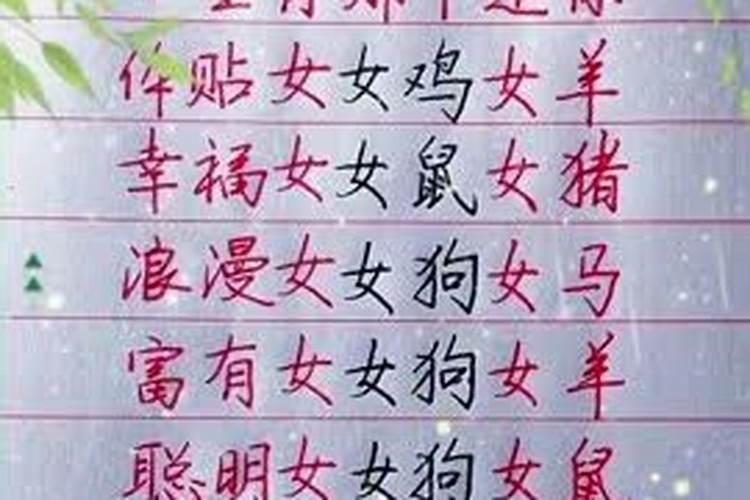 体贴女女鸡女羊
幸福女女鼠女猪
浪漫女女狗女马
富有女女狗女羊
聪明女女狗女鼠